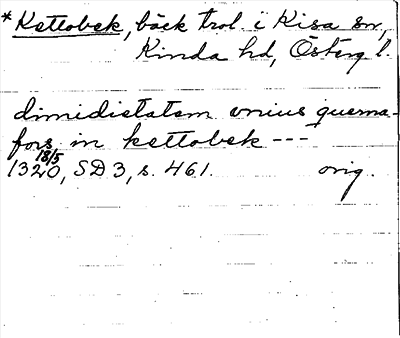 *Kettobek, bäck trol. i Kisa sn,
Kinda hd, Österg l.
dimidietatem vnius querna-
fors in kettobek ---
18/5
1320, SD 3, s. 461. orig.